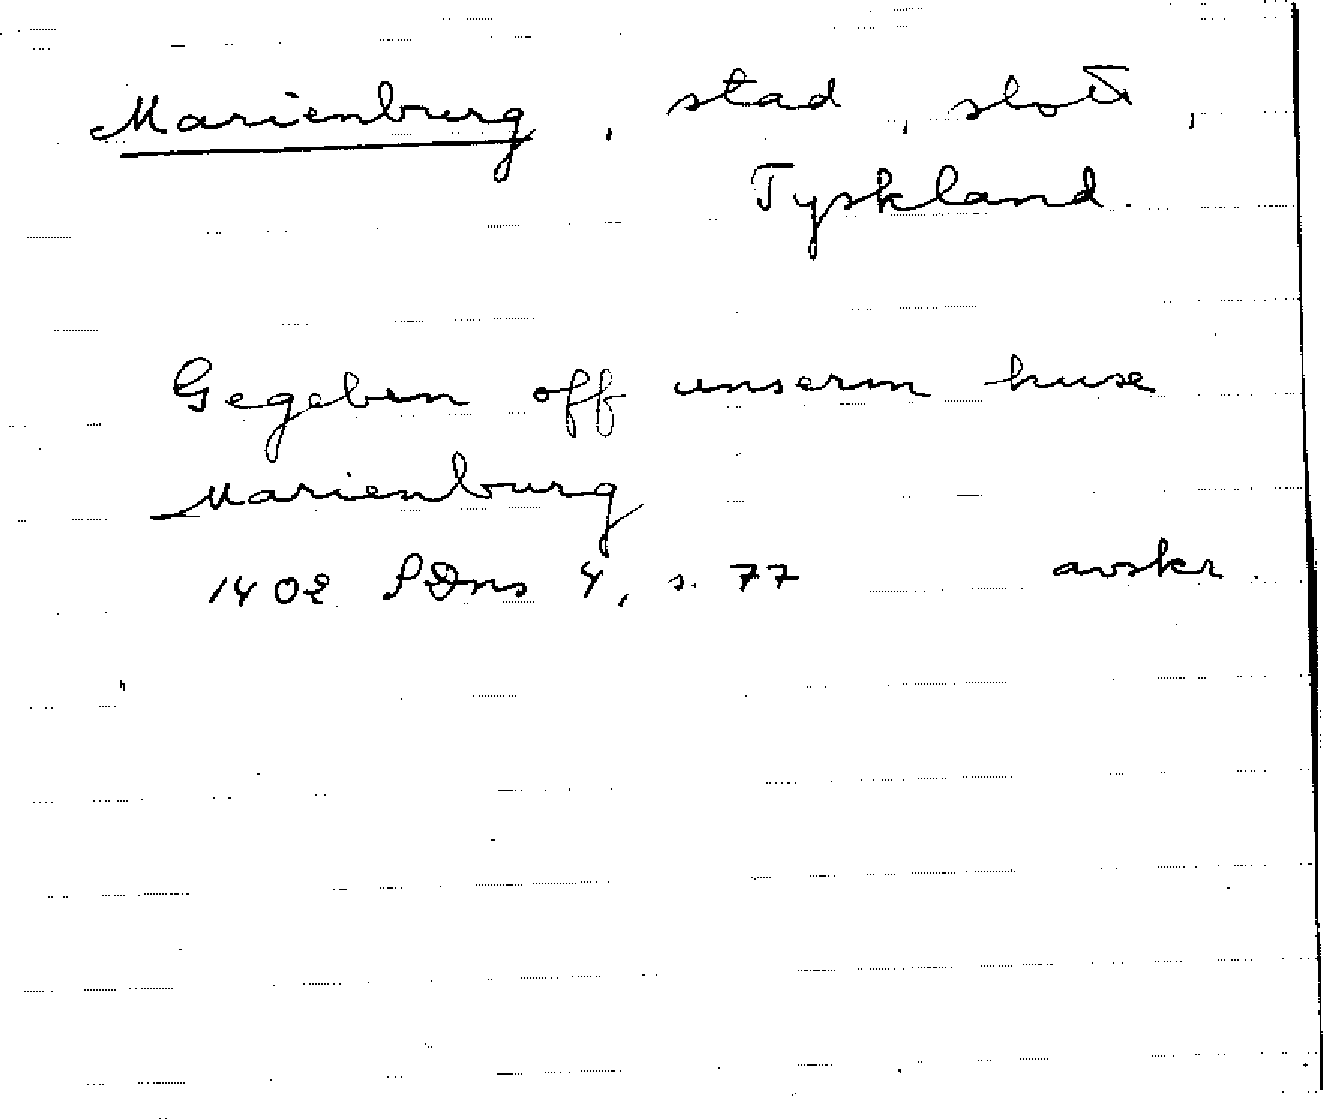 Marienburg, stad, slott,
Tyskland.
Gegeben off unserm huse
Marienburg
1402 SDns 4, s. 77 avskr.